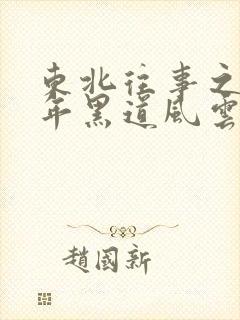 東北往事之
年黑道風雲
趙國新